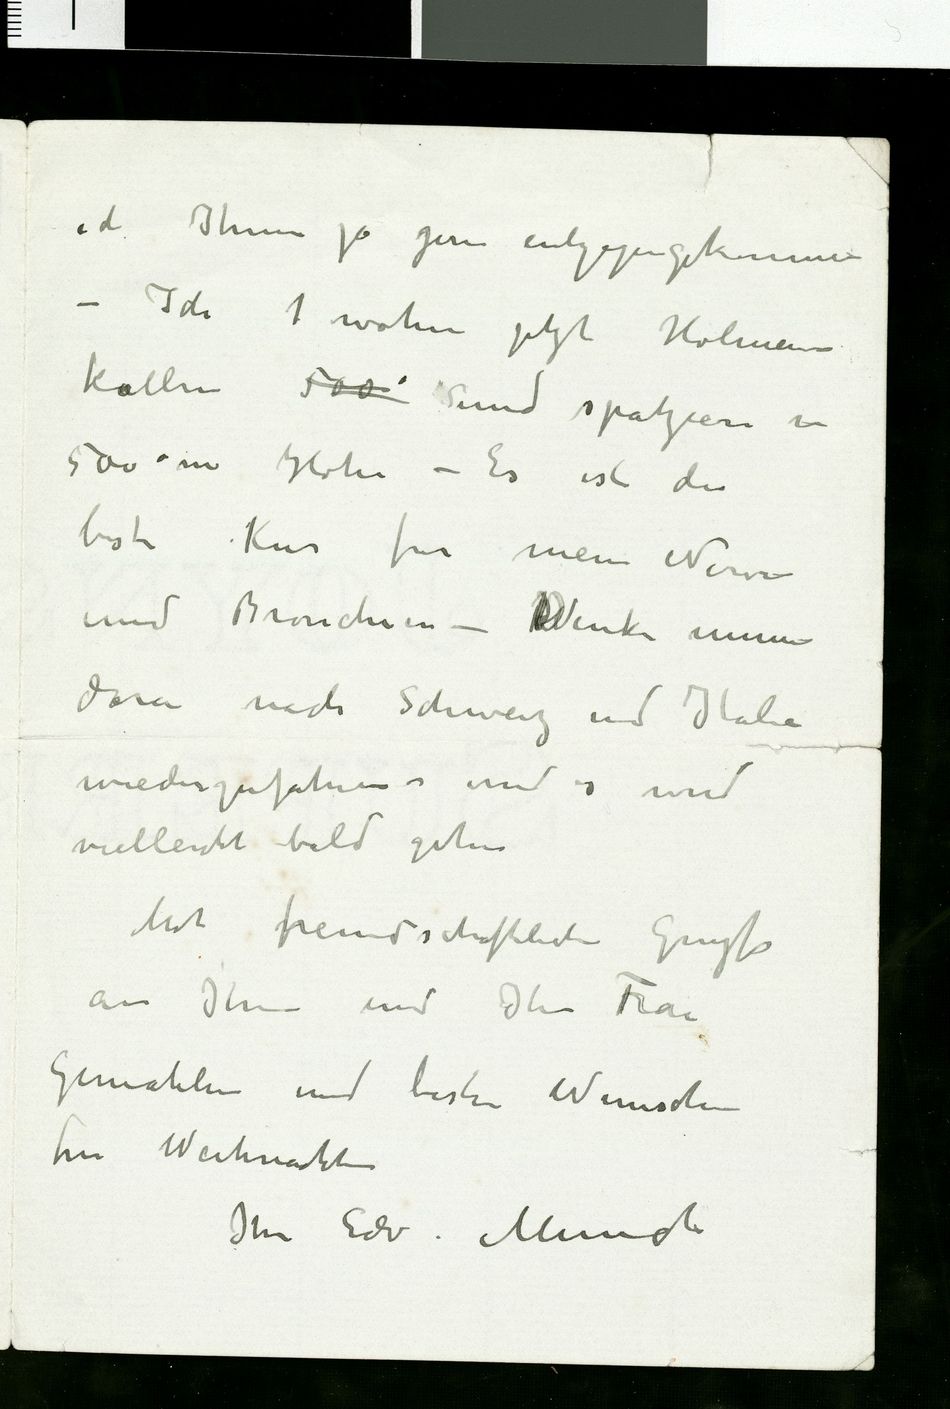 ich Ihnen ja gern entgegengekommen
– Ich wohne jetzt Holmen
kollen 500 und spatziere in
500 m Höhe – Es ist die
beste Kur für meine Nerven
und Bronchien – Denke immer
daran nach Schweiz und Italien
wiederzufahren – und es wird
vielleicht bald gehen
Mit freundschaftlichen Grüße
an Ihnen und Ihre Frau
Gemahlin und besten Wünschen
für Weihnachten
Ihr Edv. Munch